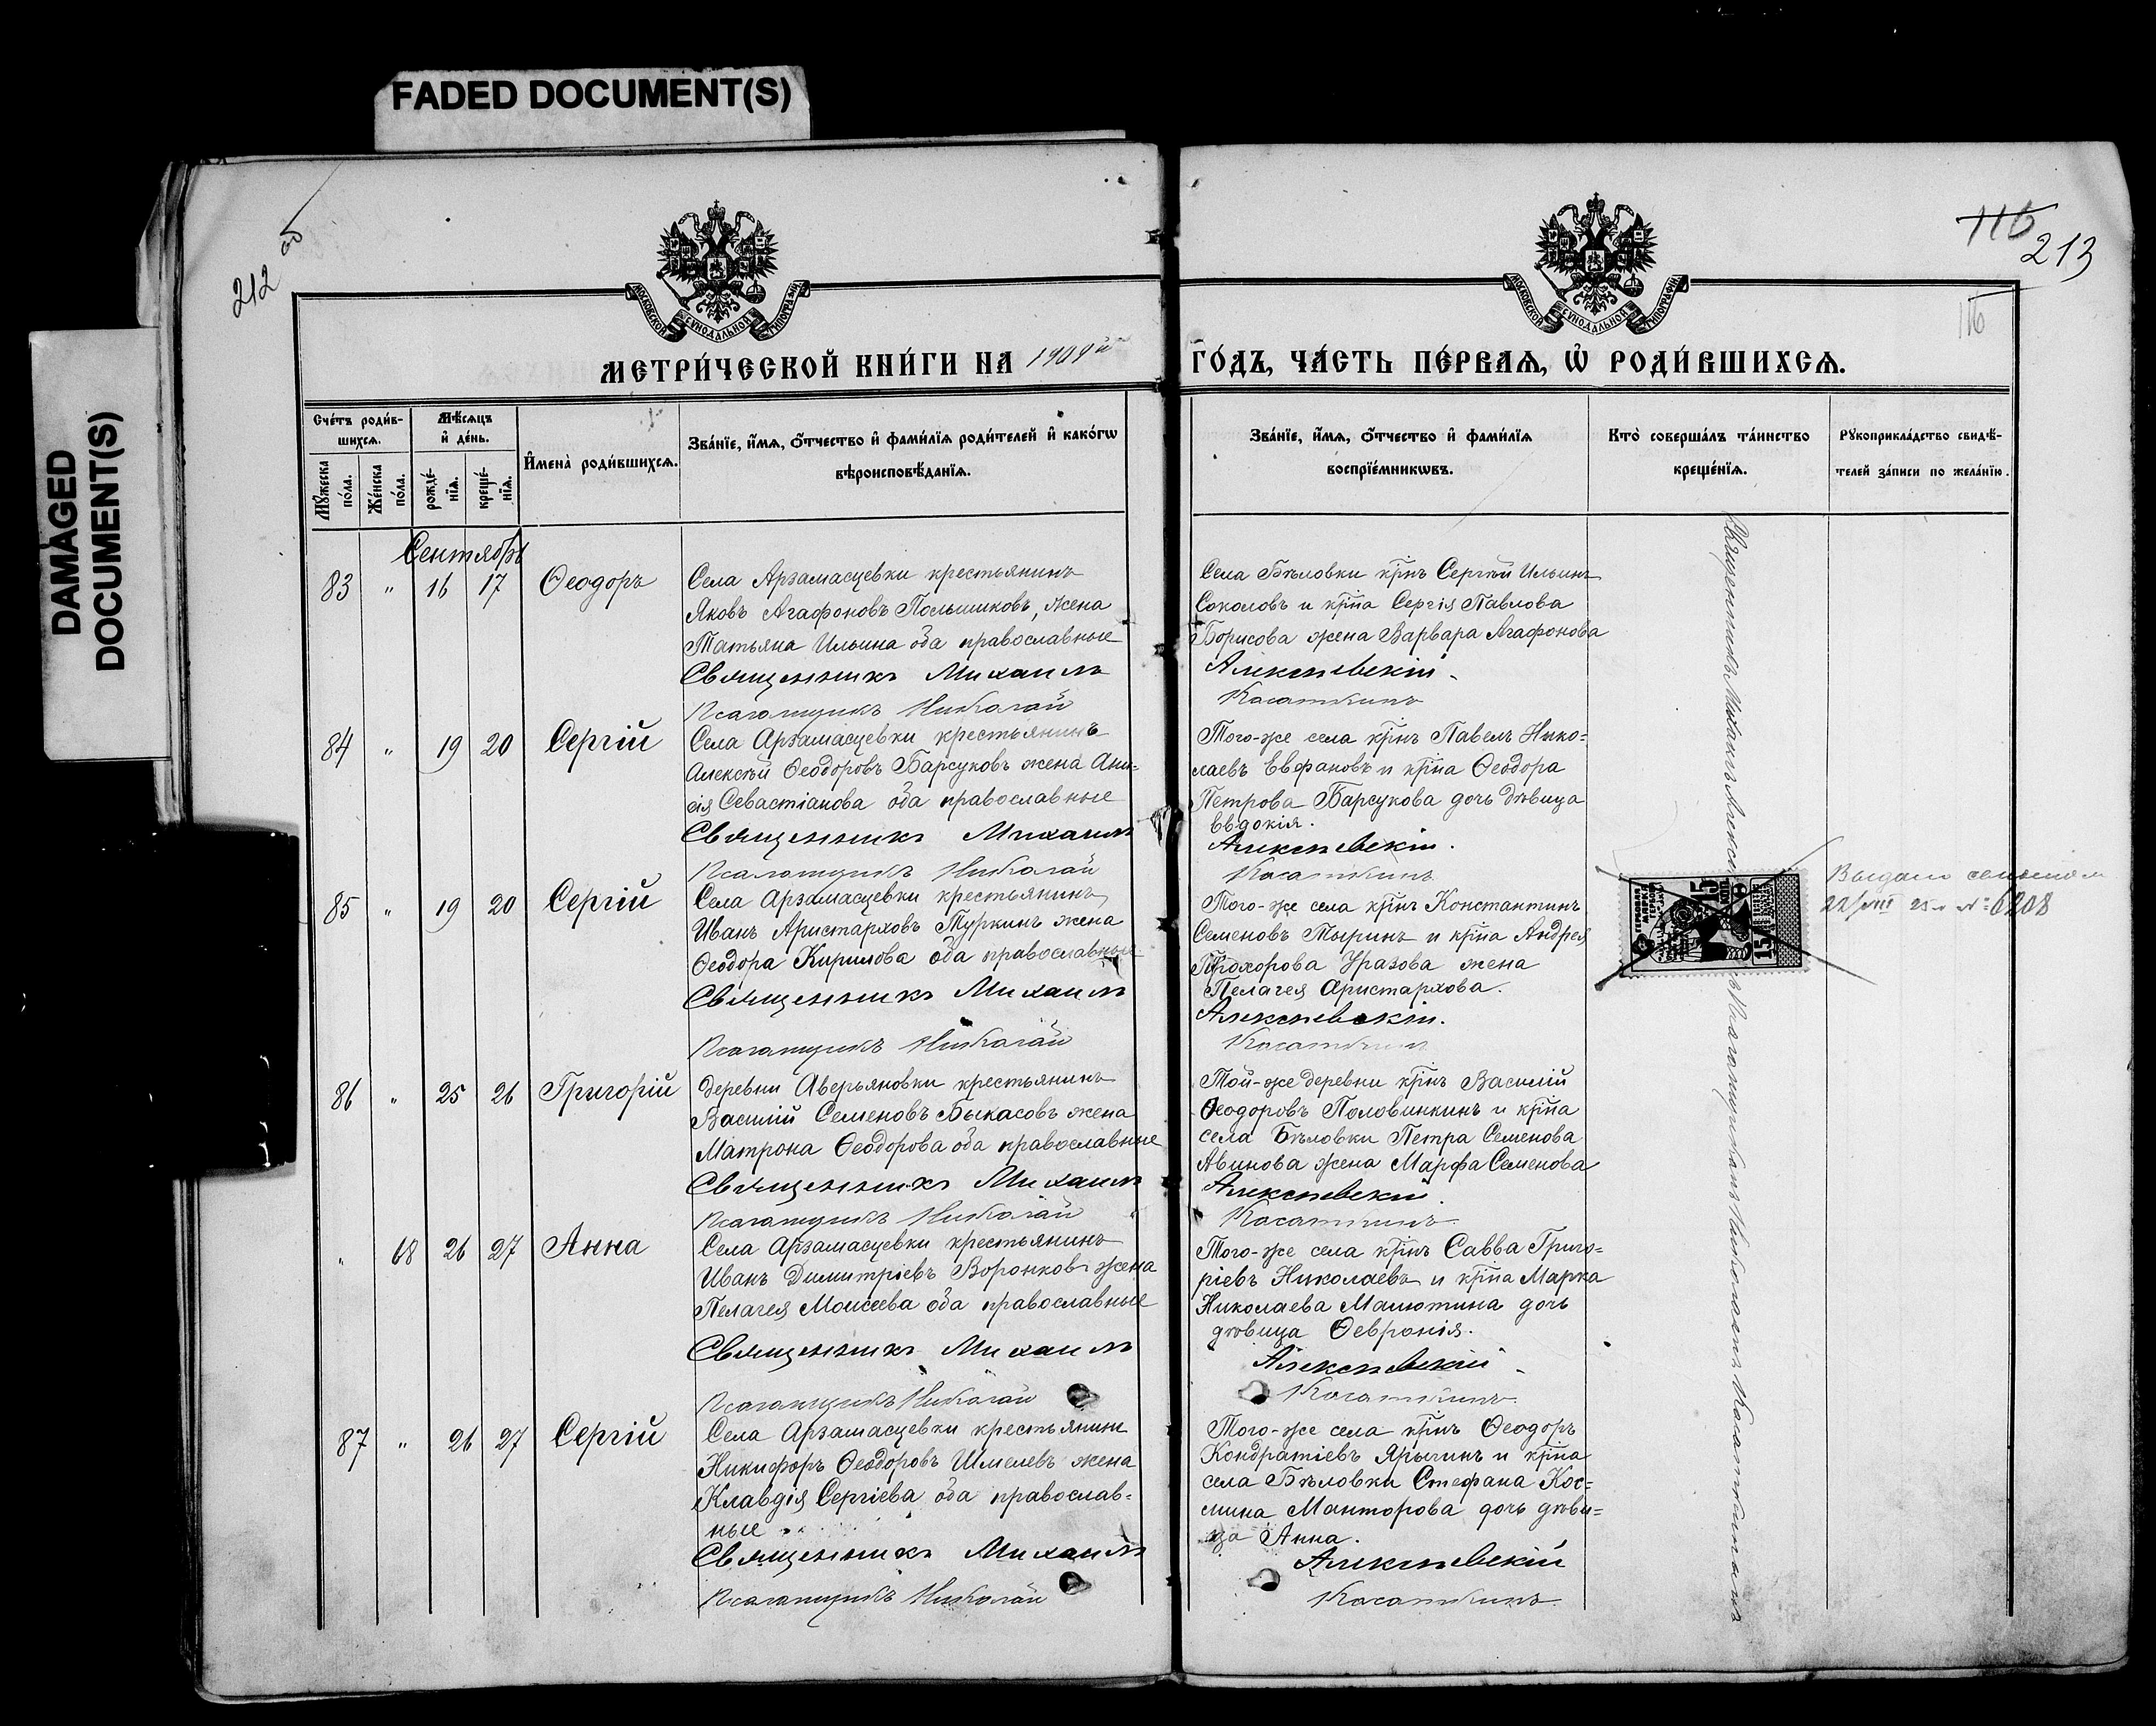 FADED DOCUMENT(S)
DAMAGED
DOCUMENT(S)
212 об
116
213
116
МОСКОВСКОЙ СѴНОДАЛЬНОЙ ТИПОГРАФІИ
МОСКОВСКОЙ СѴНОДАЛЬНОЙ ТИПОГРАФІИ
МЕТРИ́ЧЕСКОЙ КНИ́ГИ НА 1909й
ГО́ДЪ, ЧА́СТЬ ПЕ́РВАѦ, Ѡ҆ РОДИ́ВШИХСѦ.
Сче́тъ роди́в-
шихсѧ.
Мꙋ́жеска
по́ла.
Же́нска
по́ла.
Мѣ́сѧцъ
и҆ де́нь.
рожде́-
нїѧ.
креще́-
нїѧ.
И҆мена̀ роди́вшихсѧ.
Зва́нїе, и҆́мѧ, ѻ҆́тчество и҆ фами́лїѧ роди́телей и҆ како́гѡ
вѣроисповѣ́данїѧ.
Зва́нїе, и҆́мѧ, ѻ҆́тчество и҆ фами́лїѧ
воспрїе́мникѡвъ.
Кто̀ соверша́лъ та́инство
креще́нїѧ.
Рꙋкоприкла́дство свидѣ́-
телей за́писи по жела́нїю.
Сентябрь
83 " 16 17 Ѳеодоръ
Села Арзамасцевки крестьянинъ
Яковъ Агафоновъ Польшиковъ, жена
Татьяна Ильина оба православные
Священникъ Михаилъ
Псаломщикъ Николай
Села Бѣловки кр҃нъ Сергѣй Ильинъ
Соколовъ и кр҃на Сергія Павлова
Борисова жена Варвара Агафонова
Алексѣевскій
Касаткинъ
84 " 19 20 Сергій
Села Арзамасцевки крестьянинъ
Алексѣй Ѳеодоровъ Барсуковъ жена Ани-
сія Севастіанова оба православные
Священникъ Михаилъ
Псаломщикъ Николай
Того-же села кр҃нъ Павелъ Нико=
лаевъ Евфановъ и кр҃на Ѳеодора
Петрова Барсукова дочь дѣвица
Евдокія.
Алексѣевскій.
Касаткинъ
85 " 19 20 Сергій
Села Арзамасцевки крестьянинъ
Иванъ Аристарховъ Туркинъ жена
Ѳеодора Кирилова оба православные
Священникъ Михаилъ
Псаломщикъ Николай
Того-же села кр҃нъ Константинъ
Семеновъ Тыринъ и кр҃на Андрея
Прохорова Уразова жена
Пелагея Аристархова.
Алексѣевскій.
Касаткинъ
15 15
Выдано
22/VIII 25 г № 6208
86 " 25 26 Григорій
Деревни Аверьяновки крестьянинъ
Василій Семеновъ Быкасовъ жена
Матрона Ѳеодорова оба православные
Священникъ Михаилъ
Псаломщикъ Николай
Той-же деревни кр҃нъ Василій
Ѳеодоровъ Половинкинъ и кр҃на
села Бѣловки Петра Семенова
Авинова жена Марфа Семенова
Алексѣевскій.
Касаткинъ
" 68 26 27 Анна
Села Арзамасцевки крестьянинъ
Иванъ Димитріевъ Воронковъ жена
Пелагея Моисеева оба православные
Священникъ Михаилъ
Псаломщикъ Николай
Того-же села кр҃нъ Савва Григо=
ріевъ Николаевъ и кр҃на Марка
Николаева Малютина дочь
дѣвица Ѳевронія.
Алексѣевскій
Касаткинъ
87 " 26 27 Сергій
Села Арзамасцевки крестьянинъ
Никифоръ Ѳеодоровъ Шмелевъ жена
Клавдія Сергіева оба православ-
ные
Священникъ Михаилъ
Псаломщикъ Николай
Того-же села кр҃нъ Ѳеодоръ
Кондратіевъ Ярыгинъ и кр҃на
села Бѣловки Стефана Кос=
мина Манторова дочь дѣви=
ца Анна.
Алексѣевскій
Касаткинъ
Священникъ Михаилъ псаломщикомъ Николаемъ Касаткинымъ